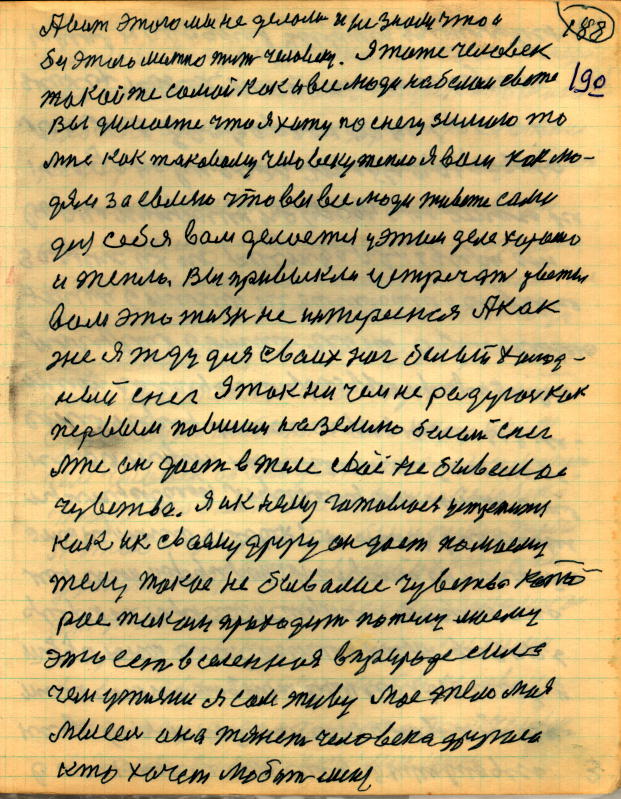 188
190
А вот этого мы не делали и не знали что и
без этого можно жить человеку. Я тоже человек
такой же самой как и все люди на белом свете
Вы думаете что я хожу по снегу зимою то
мне как таковому человеку тепло я вам как лю-
дям заевляю что вы все люди живете сами
для себя вам делается у этим деле хорошо
и тепло. Вы привыкли устречат цветы
вам это жизн не интересная А как
же я жду для своих ног белый холод-
ный снег Я так ни чем не радуюся как
первым повшим на землю белый снег
мне он дает в теле своё не бывалое
чувство. Я и к нему готовлюся
как и к своему другу он дает помоему
телу такое не бывалие чувство кото
рое током проходит по телу моему
это ест вселенная в природе сила
чем я сам живу мое тело моя
мысел она тянет человека другого
кто хочет